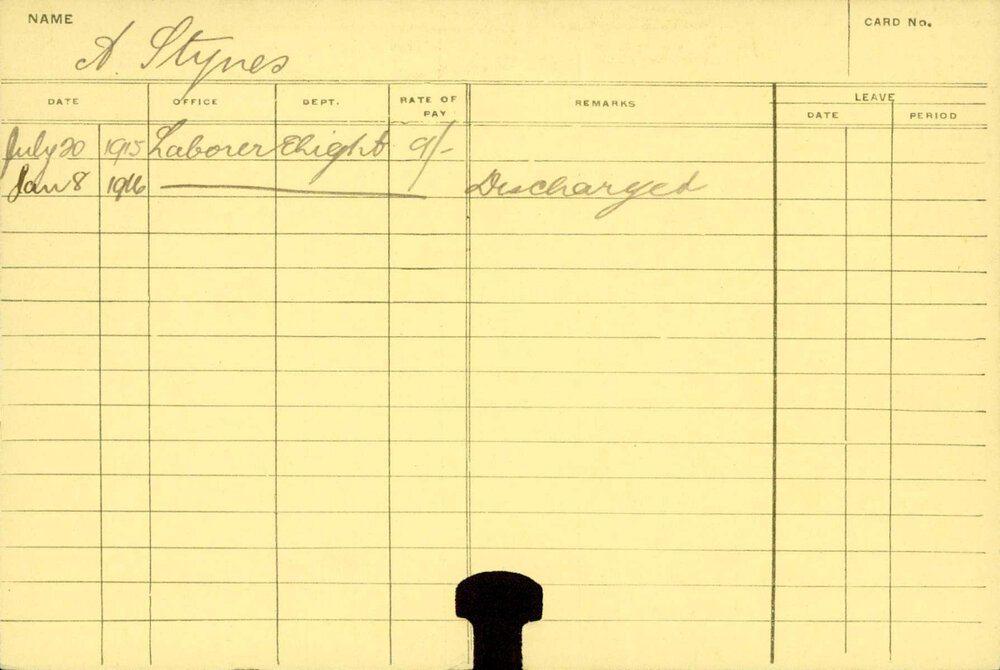 NAME
CARD No.
A. Stynes
DATE OFFICE DEPT. RATE OF PAY REMARKS LEAVE
DATE PERIOD
July 20 1915 Laborer Elright 9/-
Jan 8 1916 Discharged